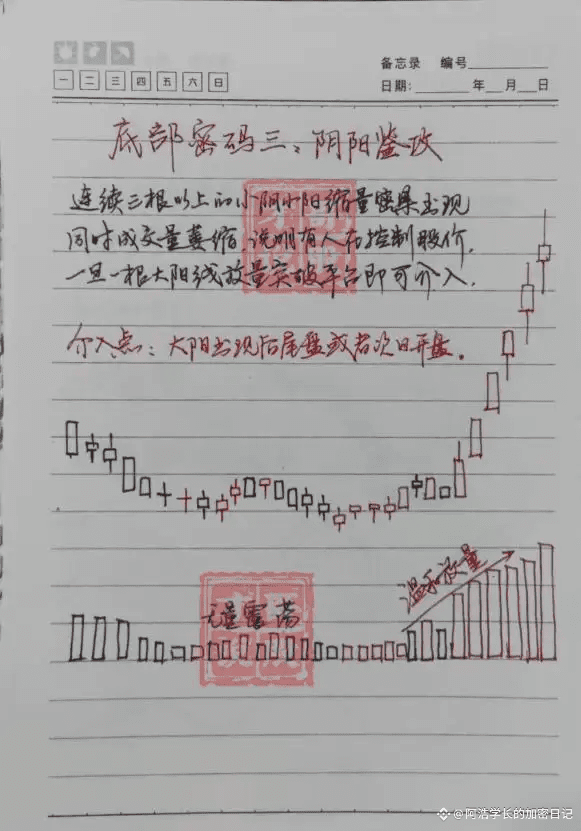 备忘录 编号
一 二 三 四 五 六 日
日期: 年 月 日
底部密码三：阴阳鉴攻
连续三根以上的小阴小阳缩量密集出现
同时成交量萎缩 说明有人在控制股价.
一旦一根大阳线放量突破平台即可介入.
介入点：大阳出现后尾盘或者次日开盘。
温和放量
无量震荡
@阿浩学长的加密日记